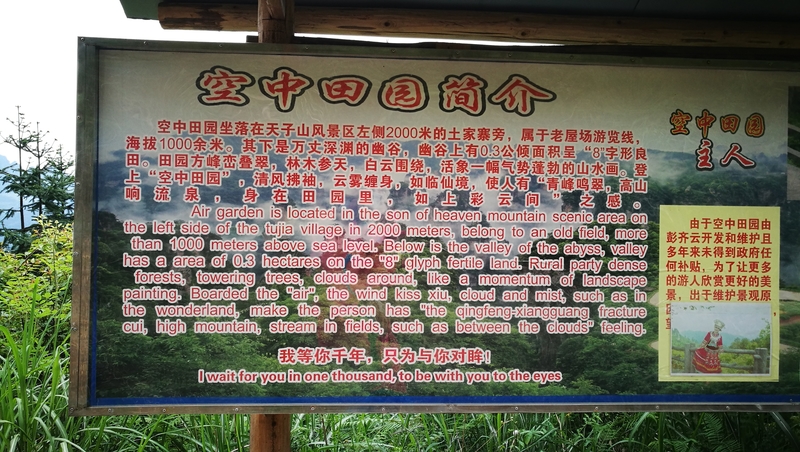 空中田园简介
空中田园坐落在天子山风景区左侧2000米的土家寨旁，属于老屋场游览线，
海拔1000余米。其下是万丈深渊的幽谷，幽谷上有0.3公倾面积呈“8”字形良
田。田园方峰峦叠翠，林木参天，白云围绕，活象一幅气势蓬勃的山水画。登
上“空中田园”，清风拂袖，云雾缠身，如临仙境，使人有“青峰鸣翠，高山
响流泉，身在田园里，如上彩云间”之感。
Air garden is located in the son of heaven mountain scenic area on
the left side of the tujia village in 2000 meters, belong to an old field, more
than 1000 meters above sea level. Below is the valley of the abyss, valley
has a area of 0.3 hectares on the "8" glyph fertile land. Rural party dense
forests, towering trees, clouds around, like a momentum of landscape
painting. Boarded the "air", the wind kiss xiu, cloud and mist, such as in
the wonderland, make the person has "the qingfeng-xiangguang fracture
cui, high mountain, stream in fields, such as between the clouds" feeling.
我等你千年，只为与你对眸！
I wait for you in one thousand, to be with you to the eyes
空中田园
主人
由于空中田园由
彭齐云开发和维护且
多年来未得到政府任
何补贴，为了让更多
的游人欣赏更好的美
景，出于维护景观原